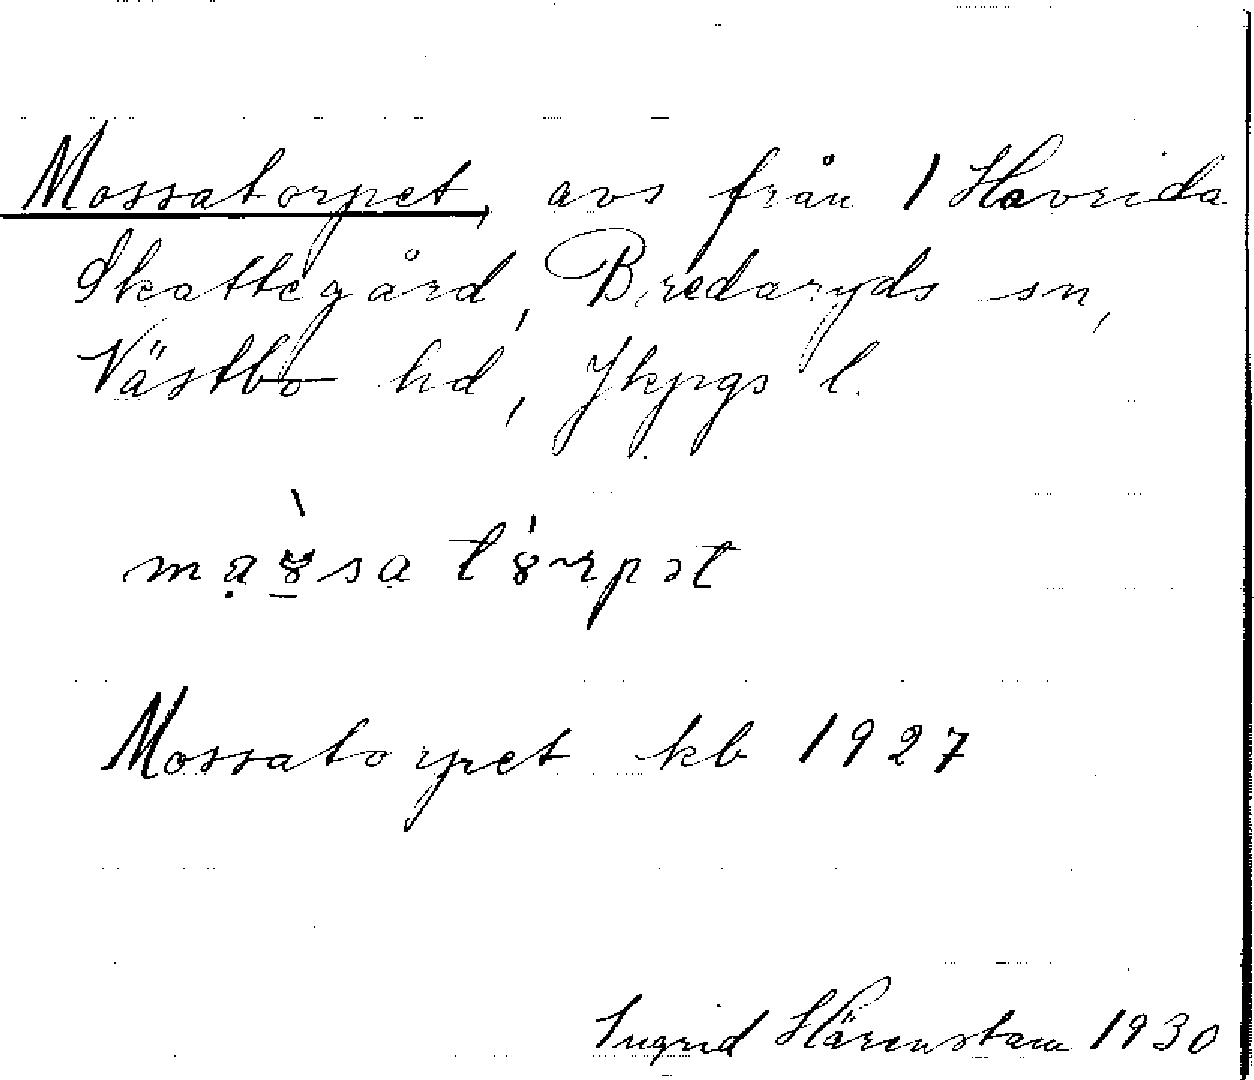 Mossatorpet, avs från 1 Havrida
Skattegård, Bredaryds sn,
Västbo hd, Jkpgs l.
Mossatorpet kb 1927
Ingrid Härenstam 1930